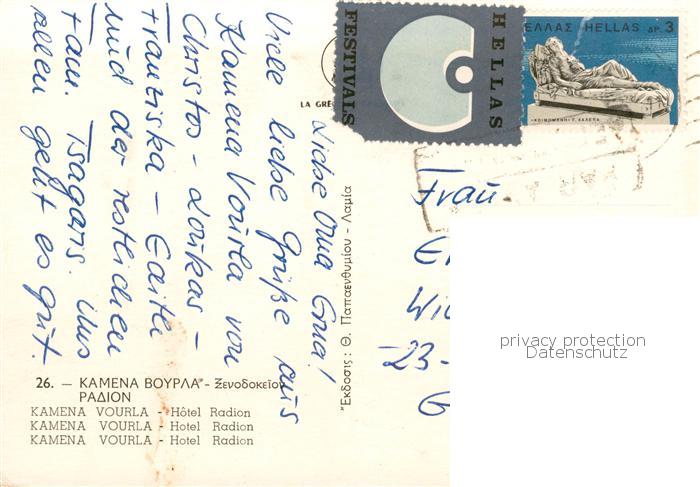 HELLAS
FESTIVALS
ΕΛΛΑΣ HELLAS ΔΡ. 3
«ΚΟΙΜΩΜΕΝΗ» Γ. ΧΑΛΕΠΑ
LA GRÈ
Liebe Oma Erna!
Viele liebe Grüße aus
Kamena Vourla von
Christos - Loukas -
Franziska -
und der restlichen
Fam. Tsagaris. Uns
allen geht es gut.
Ἔκδοσις: Θ. Παπαευθυμίου - Λαμία
Frau
Wi
23-
privacy protection
Datenschutz
26. — ΚΑΜΕΝΑ ΒΟΥΡΛΑ - Ξενοδοκεῖον
ΡΑΔΙΟΝ
KAMENA VOURLA - Hôtel Radion
KAMENA VOURLA - Hotel Radion
KAMENA VOURLA - Hotel Radion